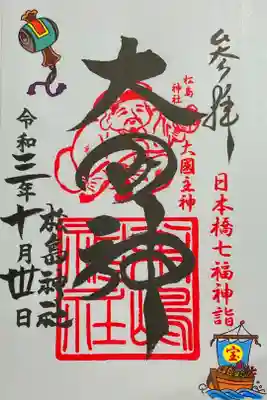 参拝
日本橋七福神詣
松島
神社
大國主神
大国神
松嶋
神社
松島神社
令和三年十月廿日
宝